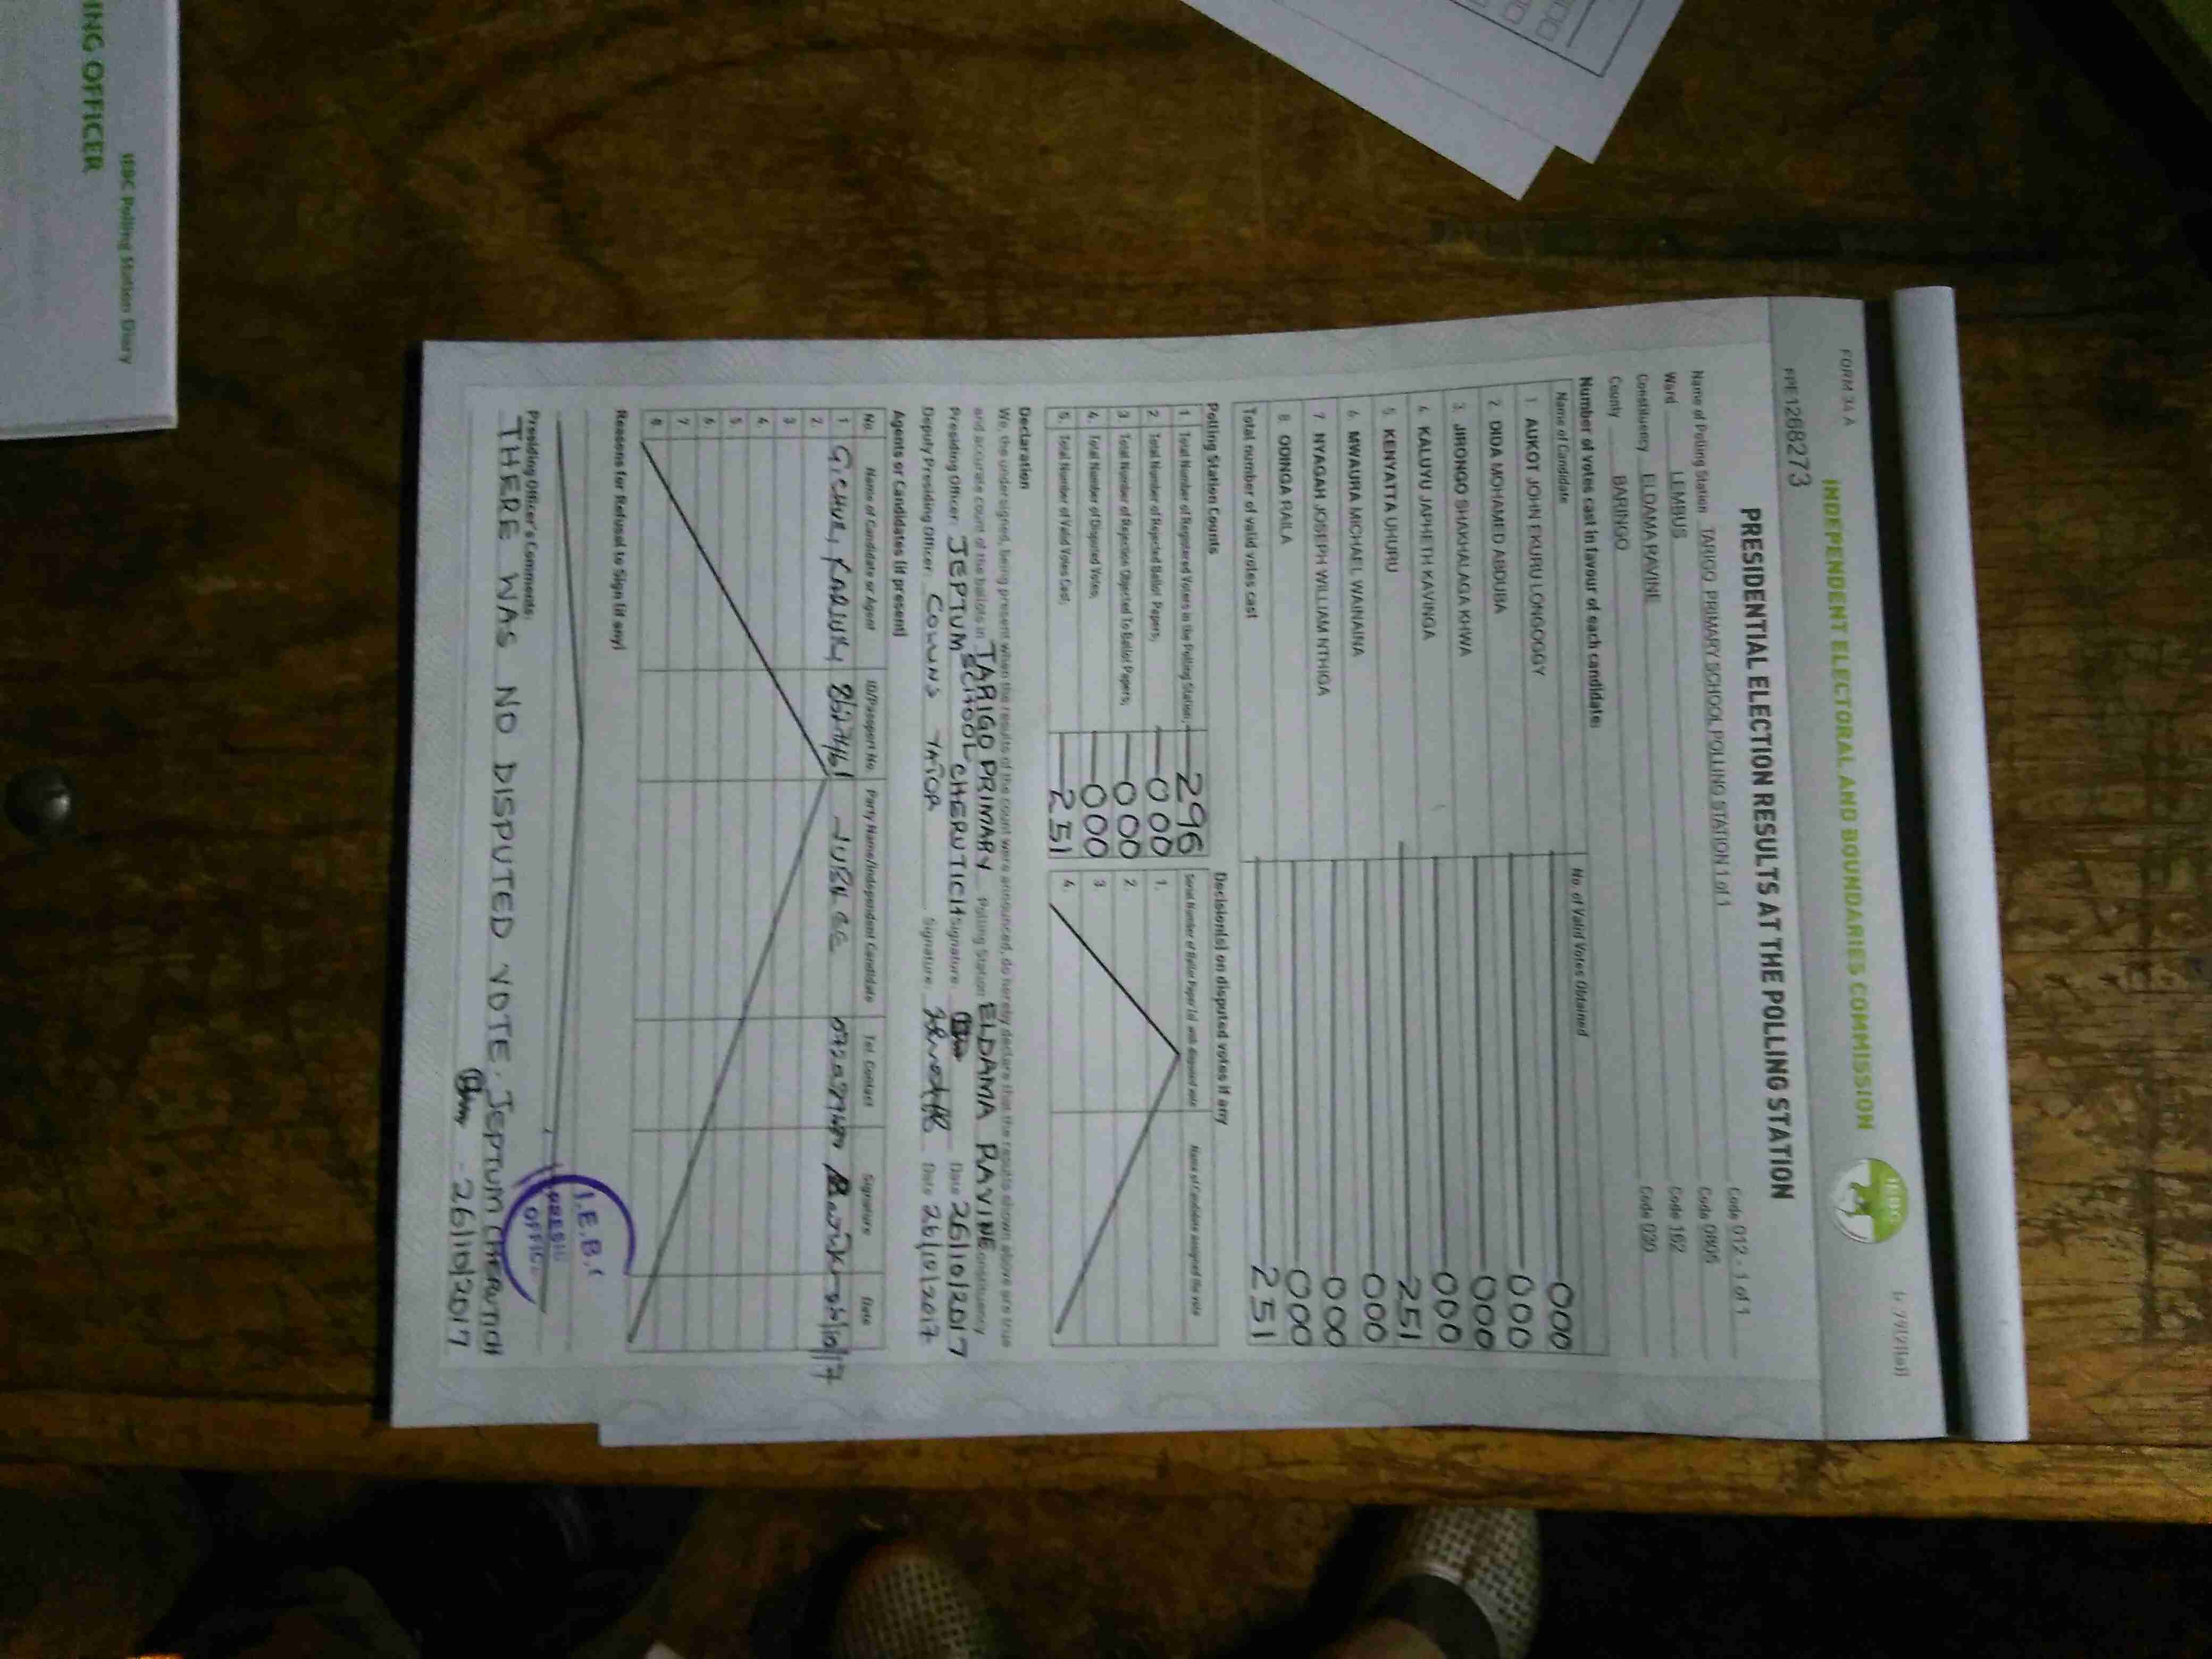 FORM 34 A
INDEPENDENT ELECTORAL AND BOUNDARIES COMMISSION
IEBC
FPE1268273
PRESIDENTIAL ELECTION RESULTS AT THE POLLING STATION
Name of Polling Station TARIGO PRIMARY SCHOOL POLLING STATION 1 of 1 Code 012 - 1 of 1
Ward LEMBUS Code 0805
Constituency ELDAMA RAVINE Code 162
County BARINGO Code 030
Number of votes cast in favour of each candidate:
Name of Candidate No. of Valid Votes Obtained
1. AUKOT JOHN EKURU LONGOGGY 000
2. DIDA MOHAMED ABDUBA 000
3. JIRONGO SHAKHALAGA KHWA 000
4. KALUYU JAPHETH KAVINGA 000
5. KENYATTA UHURU 251
6. MWAURA MICHAEL WAINAINA 000
7. NYAGAH JOSEPH WILLIAM NTHIGA 000
8. ODINGA RAILA 000
Total number of valid votes cast 251
Polling Station Counts
1. Total Number of Registered Voters in the Polling Station; 296
2. Total Number of Rejected Ballot Papers; 000
3. Total Number of Rejection Objected To Ballot Papers; 000
4. Total Number of Disputed Votes; 000
5. Total Number of Valid Votes Cast; 251
Decision(s) on disputed votes if any
Serial Number of Ballot Paper (s) with disputed vote Name of Candidate assigned the vote
1.
2.
3.
4.
Declaration
We, the undersigned, being present when the results of the count were announced, do hereby declare that the results shown above are true
and accurate count of the ballots in TARIGO PRIMARY SCHOOL Polling Station ELDAMA RAVINE constituency
Presiding Officer: JEPTUM CHERUTICH Signature Date 26/10/2017
Deputy Presiding Officer: Signature Date 26/10/2017
Agents or Candidates (if present)
No. Name of Candidate or Agent ID/Passport No. Party Name/Independent Candidate Tel. Contact Signature Date
1 KARIUKI JUBILEE 26/10/17
2.
3
4
5
6
7
8
Reasons for Refusal to Sign (if any)
Presiding Officer's Comments:
THERE WAS NO DISPUTED VOTE. JEPTUM CHERUTICH
26/10/2017
I.E.B.C
PRESID
OFFIC
IEBC Polling Station Diary
ING OFFICER